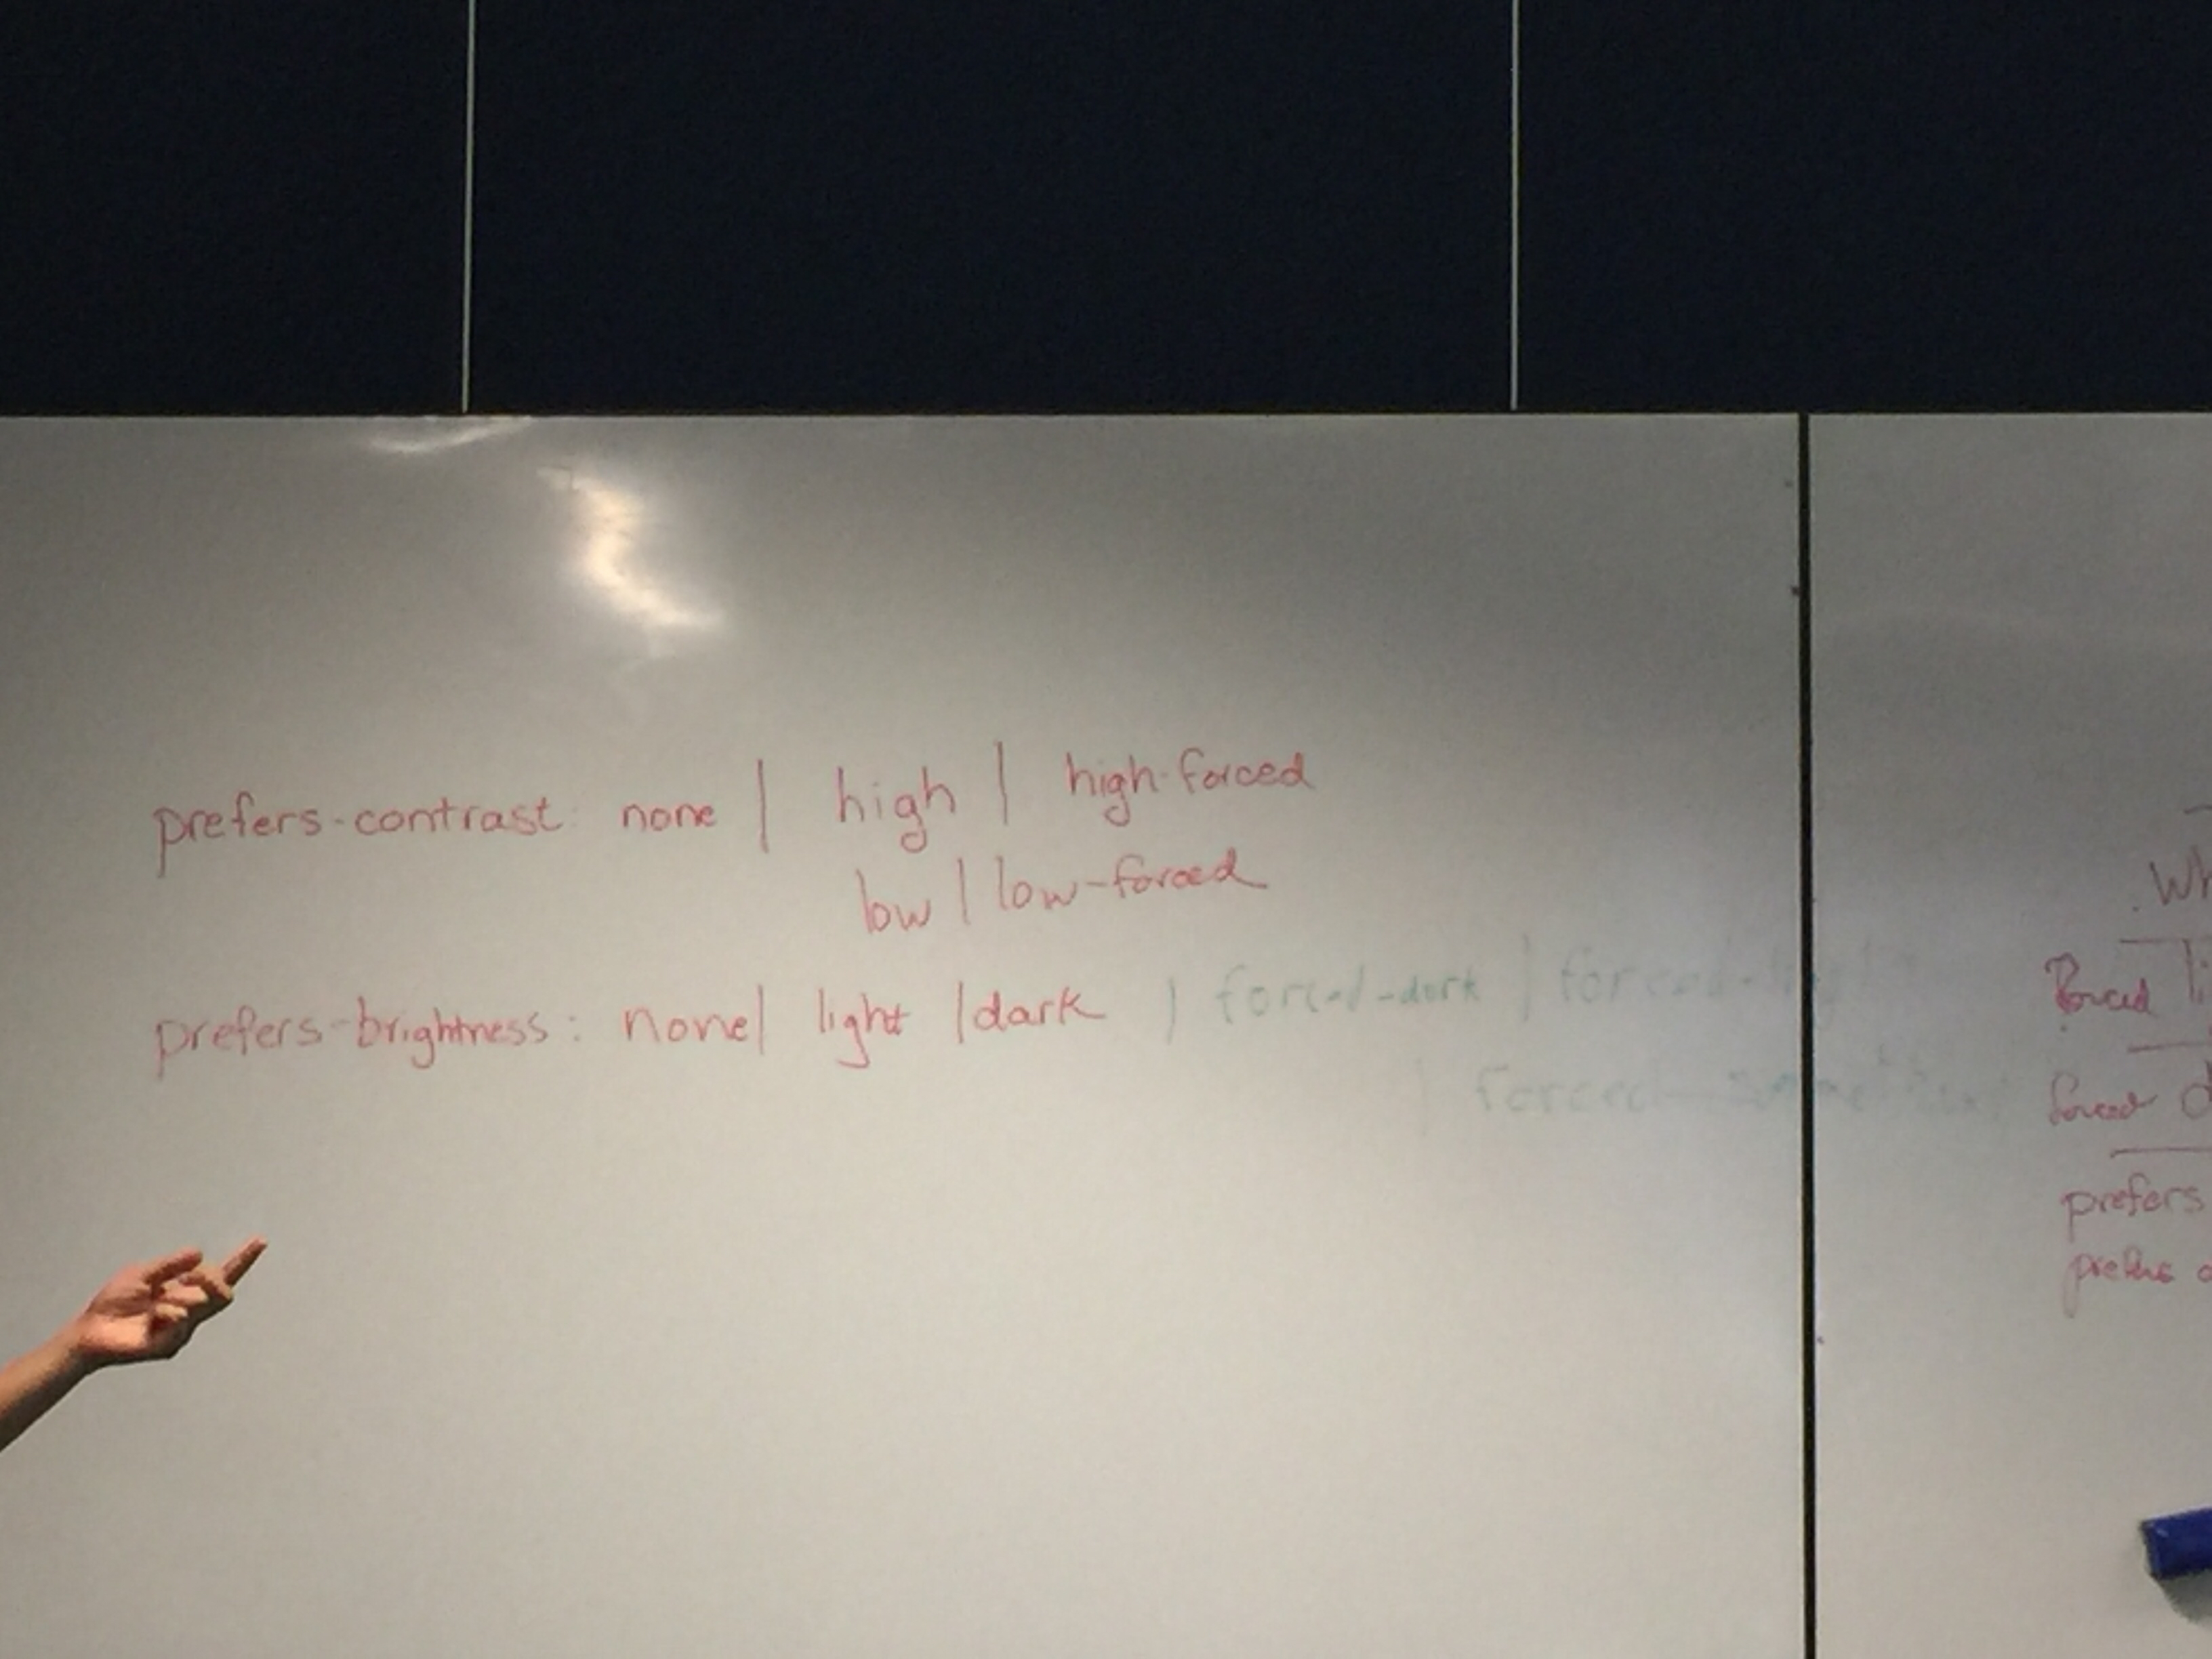 prefers-contrast: none | high | high-forced
low | low-forced
prefers-brightness: none | light | dark | forced-dark | forced-
| forced-
Forced
forced
prefers